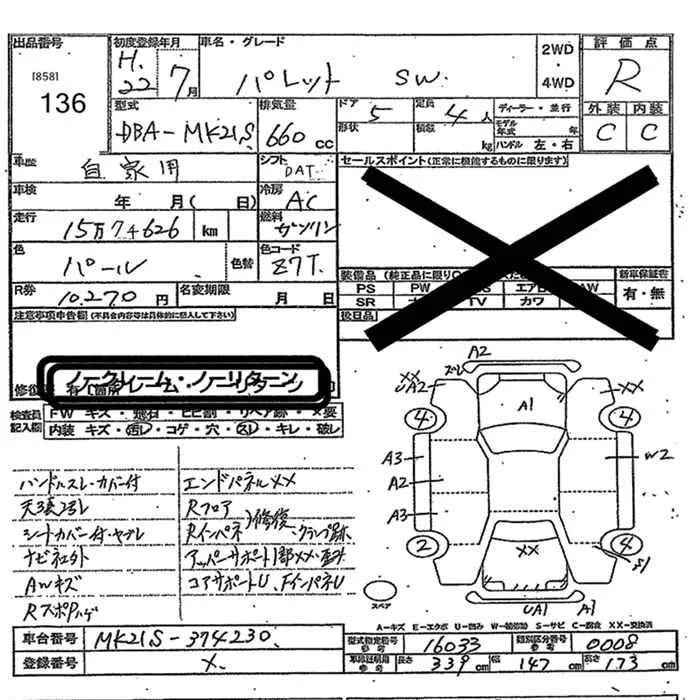 出品番号
[858]
136
初度登録年月
H.22年7月
車名・グレード
パレット SW
2WD
4WD
評価点
R
外装 内装
C C
型式
DBA-MK21S
排気量
660 cc
ドア 5
形状
定員 4人
積載 kg
ディーラー・並行
モデル年式 年
ハンドル 左・右
車歴 自家用
シフト DAT
セールスポイント(正常に機能するものに限ります)
車検 年 月( 日)
冷房 AC
走行 15万74626 km
燃料 ガソリン
色 パール
色替
色コード Z7T
R券 10,270円
名変期限 月 日
装備品(純正品に限り
新車保証書
有・無
PS PW エアB AW
SR TV カワ
後日品
注意事項申告欄(不具合内容等は具体的に記入して下さい)
ノークレーム・ノーリターン
検査員記入欄
FW キズ・飛石・ヒビ割・リペア跡・×要
内装 キズ・汚レ・コゲ・穴・スレ・キレ・破レ
ハンドルスレ・カバー付
天張ヨゴレ
シートカバー付・ヤブレ
ナビ社外
AWキズ
Rスポハゲ
エンドパネルXX
Rフロア
Rインパネ 修復、クランプ跡
アッパーサポート1部XX・歪み
コアサポートU、FインパネU
A2
スレ
XX
UA2
A1
XX
4
4
A3
A2
A3
W2
2
4
XX
S1
UA1
A1
スペア
A-キズ E-エクボ U-凹み W-補修跡 S-サビ C-腐食 XX-交換済
車台番号 MK21S-374230
登録番号 X
型式指定番号 参考 16033
類別区分番号 参考 0008
車検証明用 参考
長さ 339cm
幅 147cm
高さ 173cm